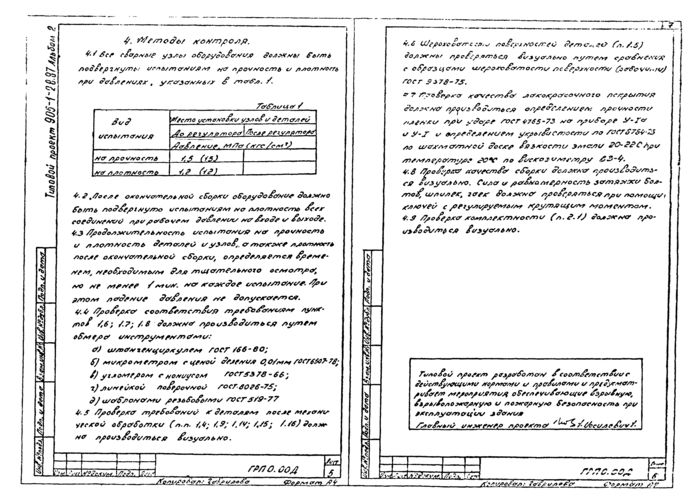 Типовой проект 905-1-28.87 Альбом 2
4. Методы контроля.
4.1 Все сварные узлы оборудования должны быть
подвергнуты испытаниям на прочность и плотность
при давлениях, указанных в табл. 1.
Таблица 1
Вид испытания
Место установки узлов и деталей
До регулятора После регулятора
Давление, МПа (кгс/см²)
на прочность 1,5 (15)
на плотность 1,2 (12)
4.2 После окончательной сборки оборудование должно
быть подвергнуто испытаниям на плотность всех
соединений при рабочем давлении на входе и выходе.
4.3 Продолжительность испытания на прочность
и плотность деталей и узлов, а также плотность
после окончательной сборки, определяется време-
нем, необходимым для тщательного осмотра,
но не менее 1 мин. на каждое испытание. При
этом падение давления не допускается.
4.4 Проверка соответствия требованиям пунк-
тов 1,6; 1.7; 1.8 должна производиться путем
обмера инструментами:
а) штангенциркулем ГОСТ 166-80;
б) микрометром с ценой деления 0,01мм ГОСТ6507-78;
в) угломером с нониусом ГОСТ5378-66;
г) линейкой поверочной ГОСТ8026-75;
д) шаблонами резьбовыми ГОСТ 519-77
4.5 Проверка требований к деталям после механи-
ческой обработки (п.п. 1,4; 1,9; 1,14; 1,15; 1.16) долж-
на производиться визуально.
ГРП0.00Д
Лист
5
Копировал: Гаврилева Формат А4
7
4.6 Шероховатости поверхностей деталей (п.1.5)
должны проверяться визуально путем сравнения
с образцами шероховатости поверхности (рабочими)
ГОСТ 9378-75.
4.7 Проверка качества лакокрасочного покрытия
должна производиться определением прочности
пленки при ударе ГОСТ 4765-73 на приборе У-1а
и У-1 и определением укрывистости по ГОСТ8784-75
по шахматной доске вязкости эмали 20-22С при
температуре 20°С по вискозиметру ВЗ-4.
4.8 Проверка качества сборки должна производить-
ся визуально. Сила и равномерность затяжки бол-
тов, шпилек, гаек должна проверяться при помощи
ключей с регулируемым крутящим моментом.
4.9 Проверка комплектности (п.2.1) должна про-
изводиться визуально.
Типовой проект разработан в соответствии с
действующими нормами и правилами и предусмат-
ривает мероприятия, обеспечивающие взрывную,
взрывопожарную и пожарную безопасность при
эксплуатации здания
Главный инженер проекта
ГРП0.00Д
Лист
6
Копировал: Гаврилева Формат